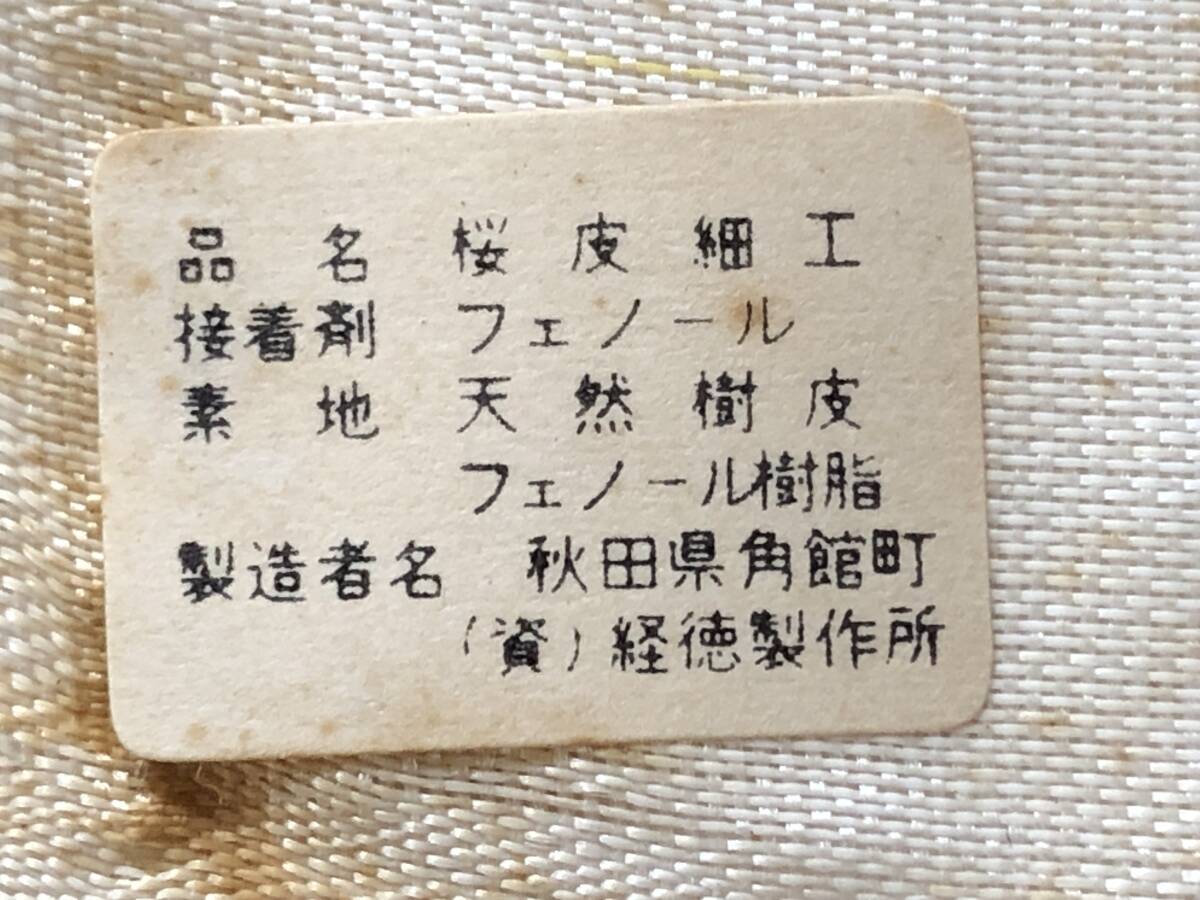 品名 桜皮細工
接着剤 フェノール
素地 天然樹皮
フェノール樹脂
製造者名 秋田県角館町
(資)経徳製作所